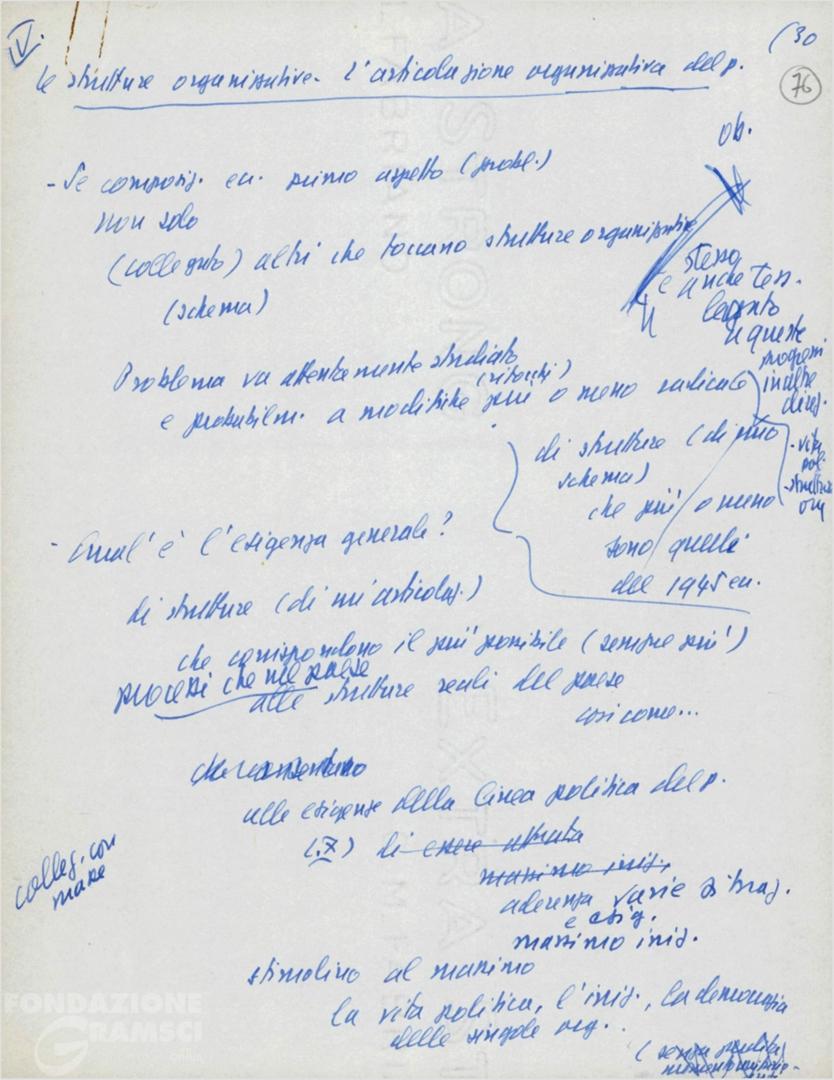 IV.
(30
76
le strutture organizzative. L'articolazione organizzativa del p.
ob.
- Se composiz. ecc. primo aspetto (probl.)
non solo
(collegato) altri che toccano strutture organizzative
(schema)
stesso
e anche tess.
legato
a queste
inoltre
Problema va attentamente studiato
(ritocchi)
e probabilm. a modifiche più o meno radicale
di strutture (di uno
schema)
che più o meno
sono quelle
del 1945 ecc.
- vita
pol.
- strutture
org
- Qual'è l'esigenza generale?
di strutture (di un'articolaz.)
che corrispondono il più possibile (sempre più)
processi che nel paese
alle strutture reali del paese
così come...
che consentano
alle esigenze della linea politica del p.
(X) di essere attuata
massimo iniz.
aderenza varie situaz.
e esig.
massimo iniz.
colleg. con
masse
stimolino al massimo
la vita politica, l'iniz., la democrazia
delle singole org..
(senza
FONDAZIONE
GRAMSCI